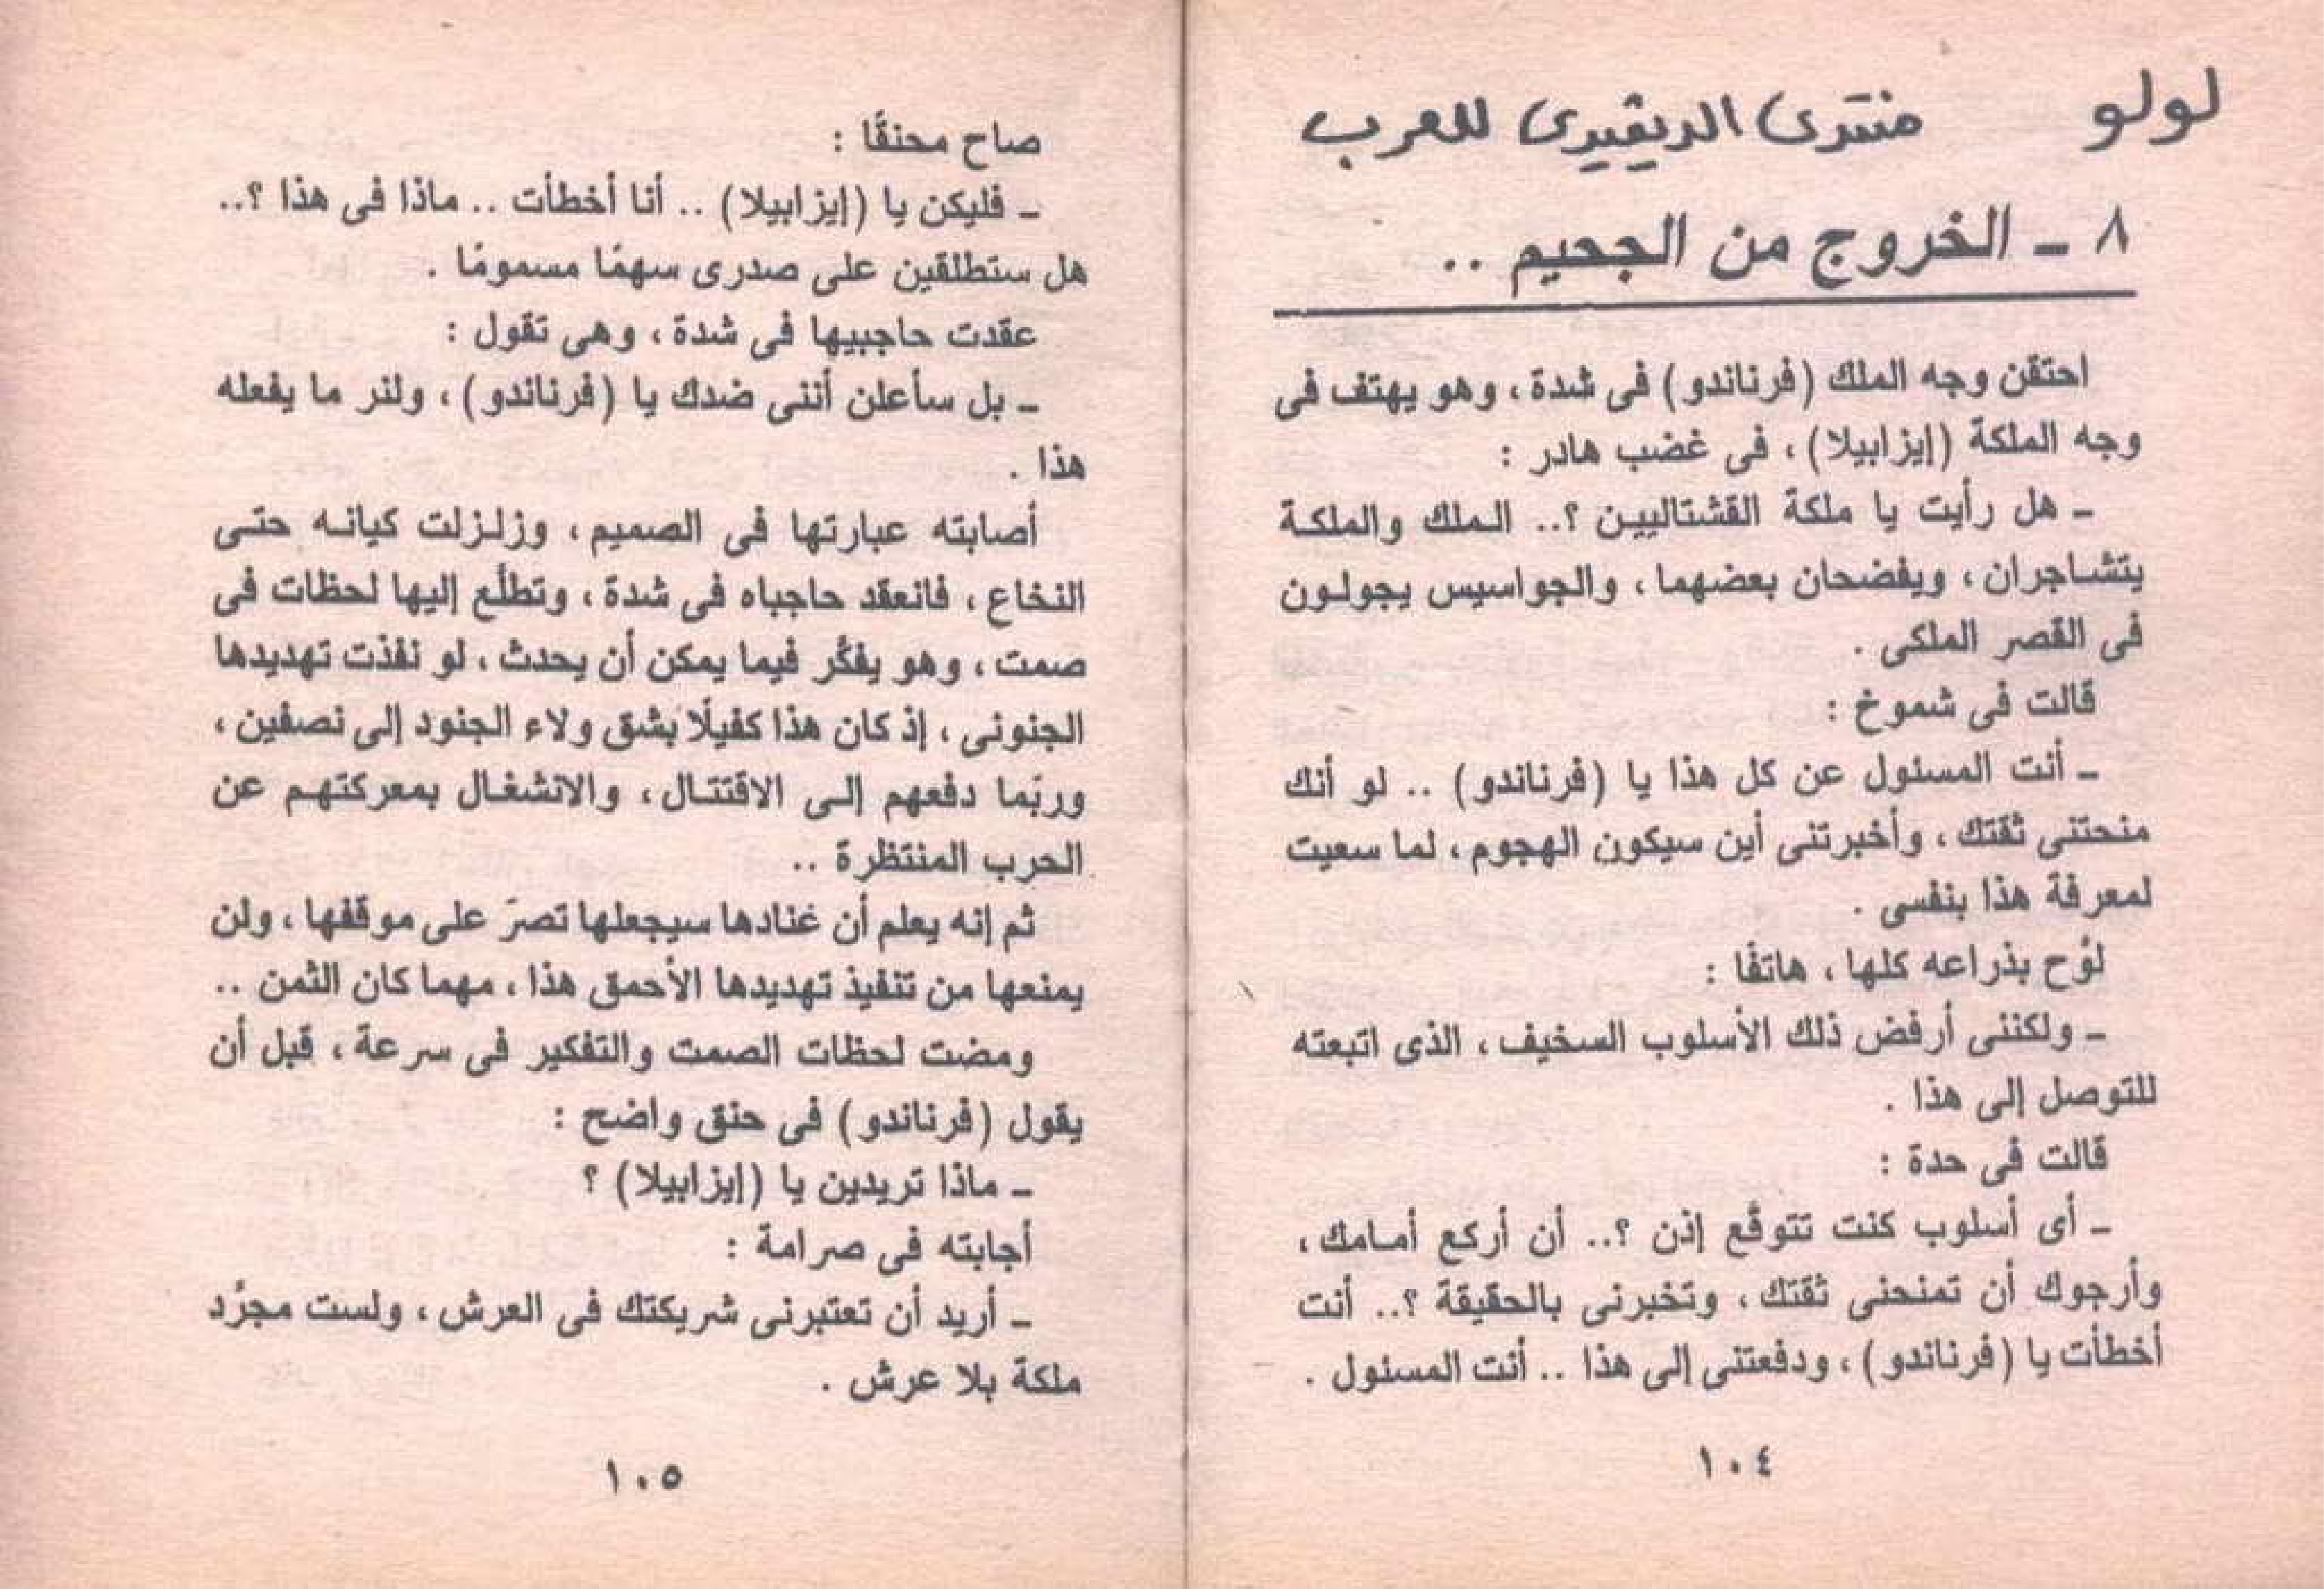 لولو منتدى الديڤيدى للعرب
٨ ـ الخروج من الجحيم ..
احتقن وجه الملك (فرناندو) فى شدة ، وهو يهتف فى
وجه الملكة (إيزابيلا) ، فى غضب هادر :
ـ هل رأيت يا ملكة القشتاليين ؟.. الملك والملكة
يتشاجران ، ويفضحان بعضهما ، والجواسيس يجولون
فى القصر الملكى .
قالت فى شموخ :
ـ أنت المسئول عن كل هذا يا (فرناندو) .. لو أنك
منحتنى ثقتك ، وأخبرتنى أين سيكون الهجوم ، لما سعيت
لمعرفة هذا بنفسى .
لوَّح بذراعه كلها ، هاتفًا :
ـ ولكننى أرفض ذلك الأسلوب السخيف ، الذى اتبعته
للتوصل إلى هذا .
قالت فى حدة :
ـ أى أسلوب كنت تتوقَّع إذن ؟.. أن أركع أمامك ،
وأرجوك أن تمنحنى ثقتك ، وتخبرنى بالحقيقة ؟.. أنت
أخطأت يا (فرناندو) ، ودفعتنى إلى هذا .. أنت المسئول .
١٠٤
صاح محنقًا :
ـ فليكن يا (إيزابيلا) .. أنا أخطأت .. ماذا فى هذا ؟..
هل ستطلقين على صدرى سهمًا مسمومًا .
عقدت حاجبيها فى شدة ، وهى تقول :
ـ بل سأعلن أننى ضدك يا (فرناندو) ، ولنر ما يفعله
هذا .
أصابته عبارتها فى الصميم ، وزلزلت كيانه حتى
النخاع ، فانعقد حاجباه فى شدة ، وتطلَّع إليها لحظات فى
صمت ، وهو يفكَّر فيما يمكن أن يحدث ، لو نفذت تهديدها
الجنونى ، إذ كان هذا كفيلًا بشق ولاء الجنود إلى نصفين ،
وربَّما دفعهم إلى الاقتتال ، والانشغال بمعركتهم عن
الحرب المنتظرة ..
ثم إنه يعلم أن غنادها سيجعلها تصرّ على موقفها ، ولن
يمنعها من تنفيذ تهديدها الأحمق هذا ، مهما كان الثمن ..
ومضت لحظات الصمت والتفكير فى سرعة ، قبل أن
يقول (فرناندو) فى حنق واضح :
ـ ماذا تريدين يا (إيزابيلا) ؟
أجابته فى صرامة :
ـ أريد أن تعتبرنى شريكتك فى العرش ، ولست مجرَّد
ملكة بلا عرش .
١٠٥